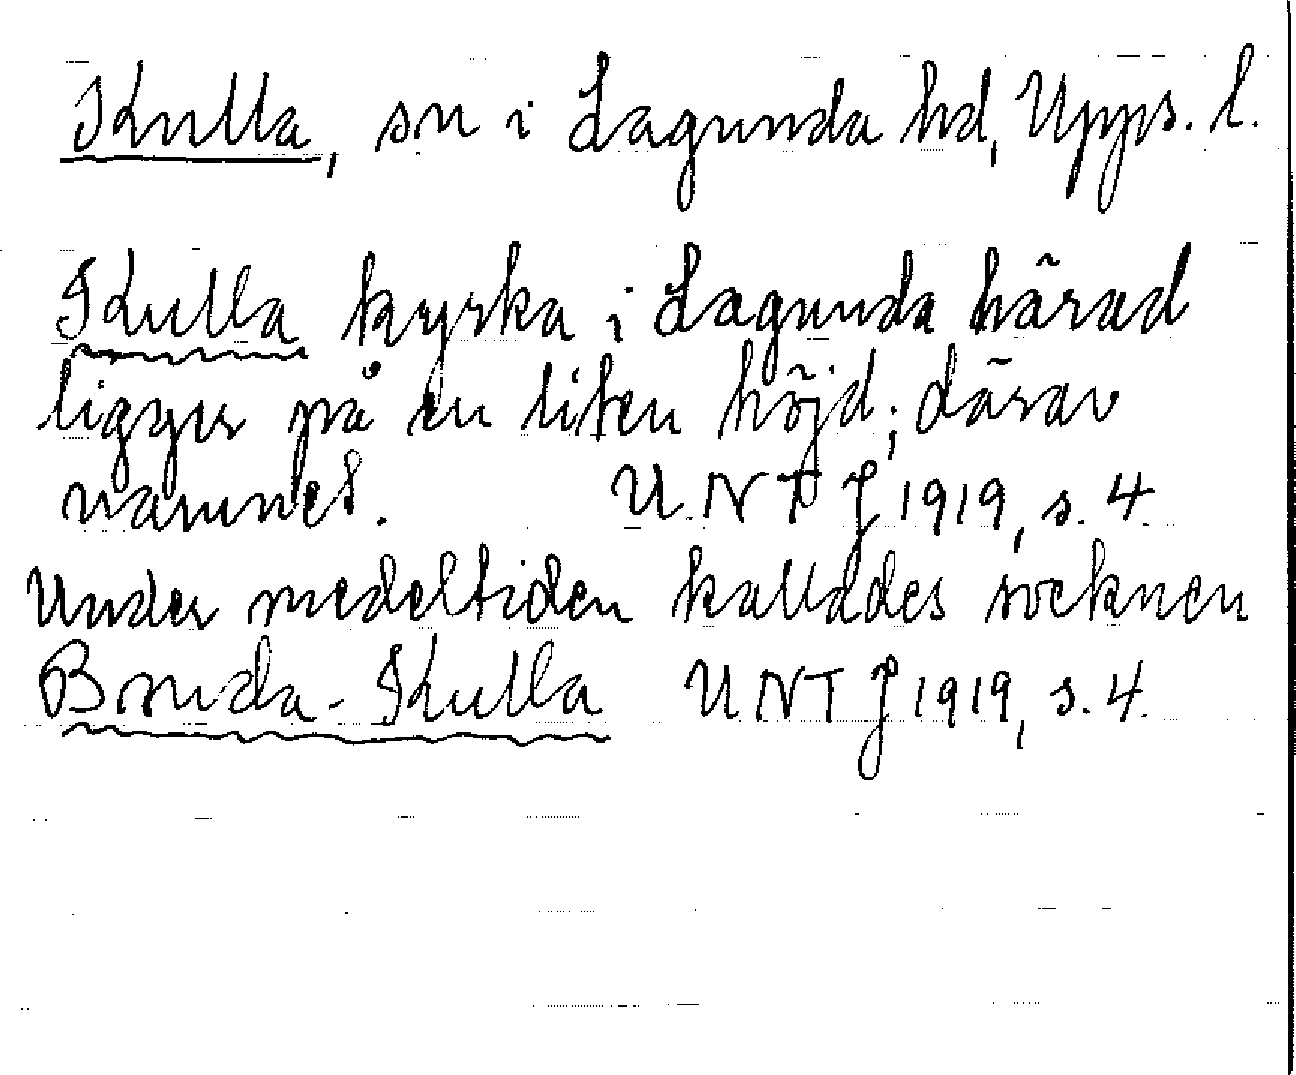 Kulla, sn i Lagunda hd, Upps. l.
Kulla kyrka i Lagunda härad
ligger på en liten höjd; därav
namnet. UNT J 1919, s. 4.
Under medeltiden kallades socknen
Bruda-Kulla UNT J 1919, s. 4.